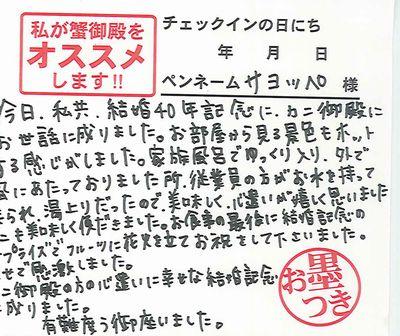 私が蟹御殿を
オススメ
します!!
チェックインの日にち
年 月 日
ペンネーム サヨッペ 様
今日、私共、結婚40年記念に、カニ御殿に
お世話に成りました。お部屋から見る景色もホット
する感じがしました。家族風呂でゆっくり入り、外で
風にあたっておりました所、従業員の方がお水を持って
られ、湯上りだったので、美味しく、心遣いが嬉しく思いました
ニを美味しく頂だきました。お食事の最後に結婚記念の
プライズでフルーツに花火を立てお祝をして下さいました。
せで感激しました。
ニ御殿の方の心遣いに幸せな結婚記念
成りました。
有難度う御座いました。
お墨
つき